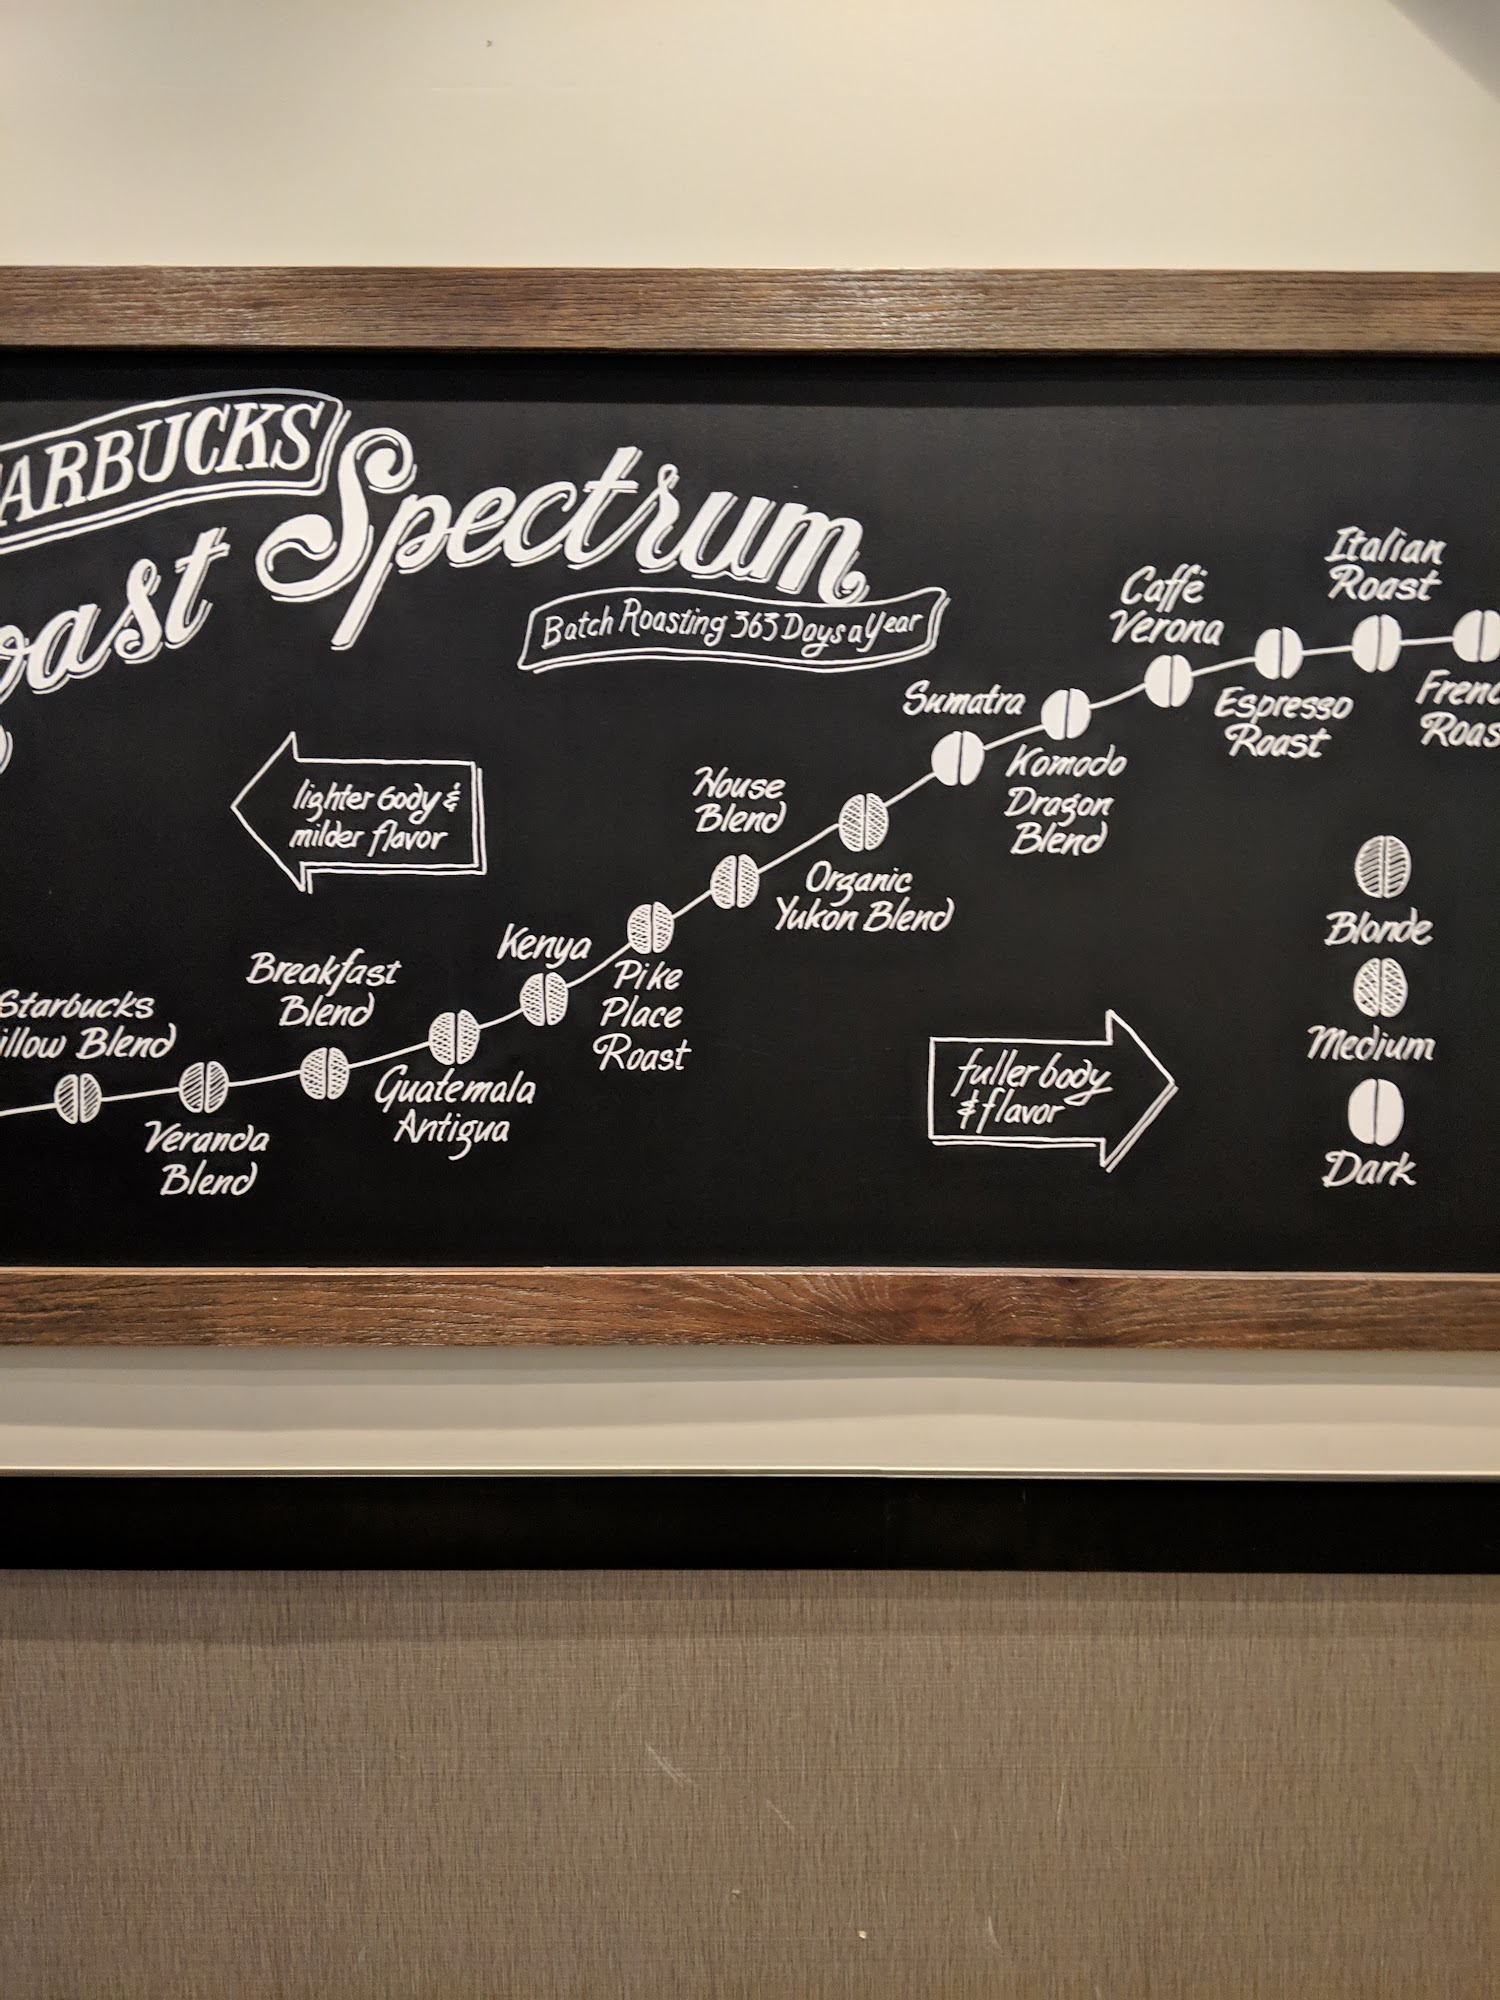 ARBUCKS
oast Spectrum
Batch Roasting 363 Days a Year
lighter body &
milder flavor
Starbucks
illow Blend
Veranda
Blend
Breakfast
Blend
Guatemala
Antigua
Kenya
Pike
Place
Roast
House
Blend
Organic
Yukon Blend
Sumatra
Komodo
Dragon
Blend
Caffè
Verona
Espresso
Roast
Italian
Roast
Frenc
Roas
fuller body
& flavor
Blonde
Medium
Dark